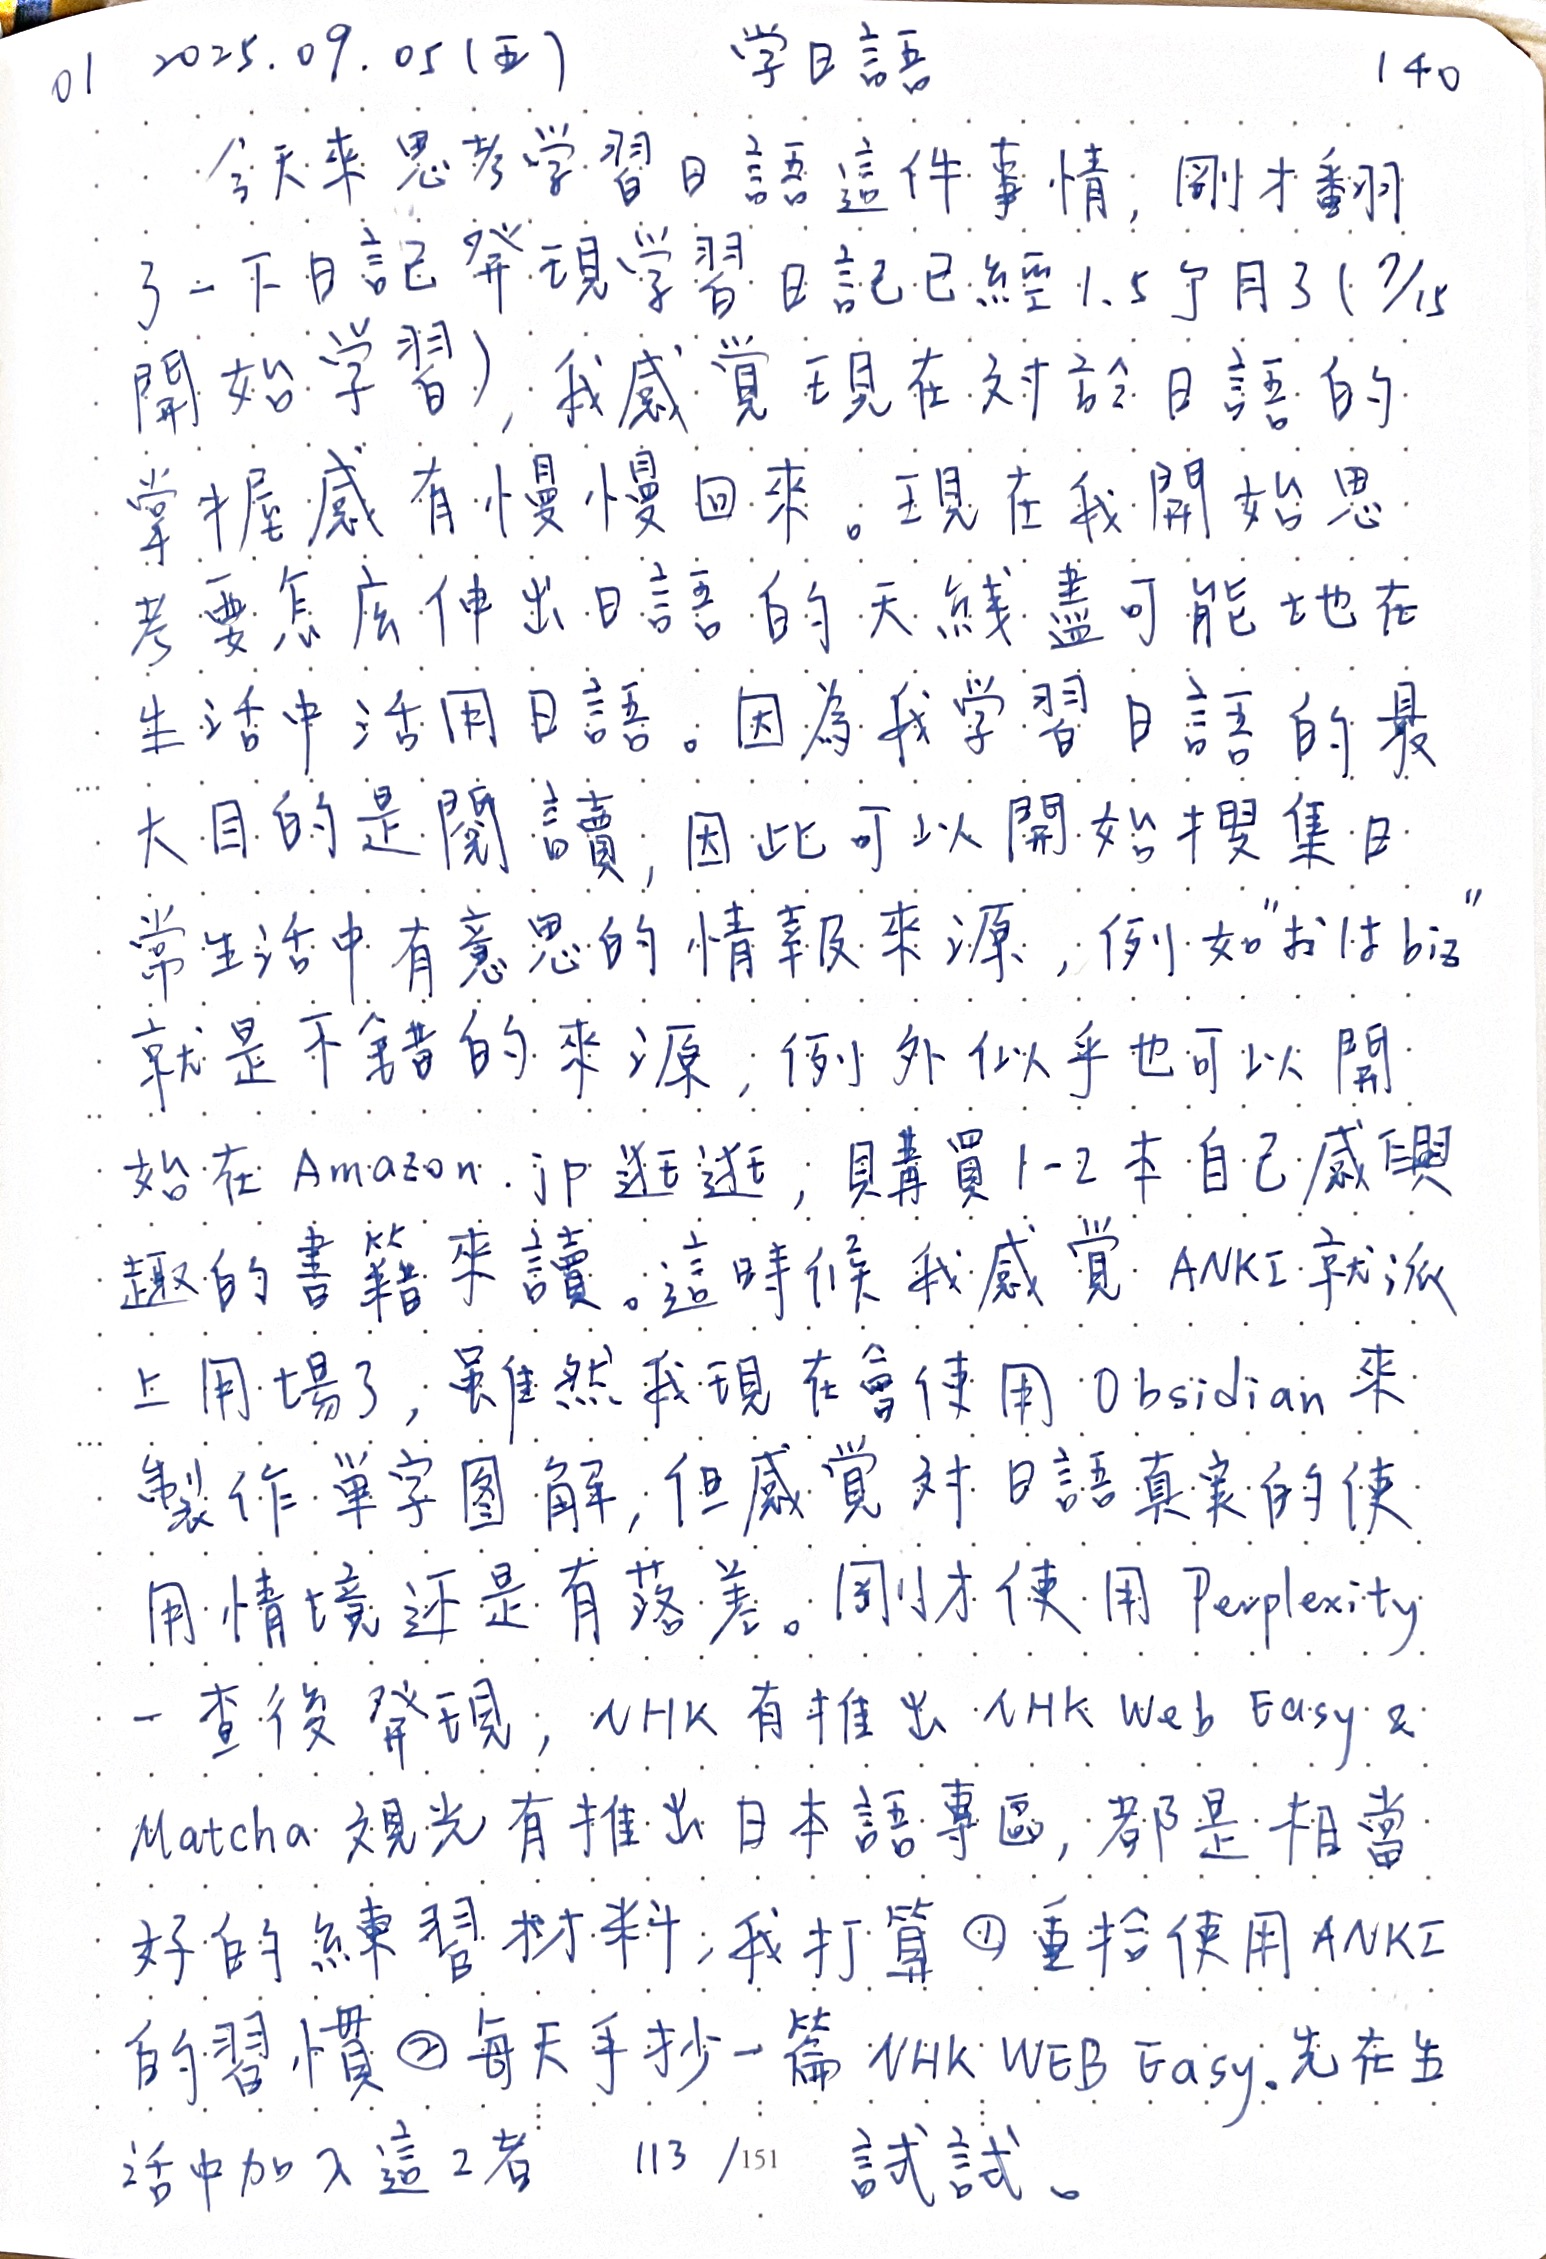 01 2025.09.05(五) 学日語 140
今天來思考学習日語這件事情，剛才翻
了一下日記発現学習日記已經1.5个月了(7/15
開始学習)，我感覚現在対於日語的
掌握感有慢慢回來。現在我開始思
考要怎么伸出日語的天線盡可能地在
生活中活用日語。因為我学習日語的最
大目的是閱讀，因此可以開始搜集日
常生活中有意思的情報來源，例如"おはbiz"
就是不錯的來源，例外似乎也可以開
始在Amazon.jp逛逛，購買1-2本自己感興
趣的書籍來讀。這時候我感覚ANKI就派
上用場了，雖然我現在會使用Obsidian來
製作單字图解，但感覚対日語真実的使
用情境还是有落差。剛才使用Perplexity
一查後発現，NHK有推出NHK Web Easy &
Matcha 观光有推出日本語專區，都是相當
好的練習材料，我打算①重拾使用ANKI
的習慣②每天手抄一篇NHK WEB Easy。先在生
活中加入這2者 113/151 試試。